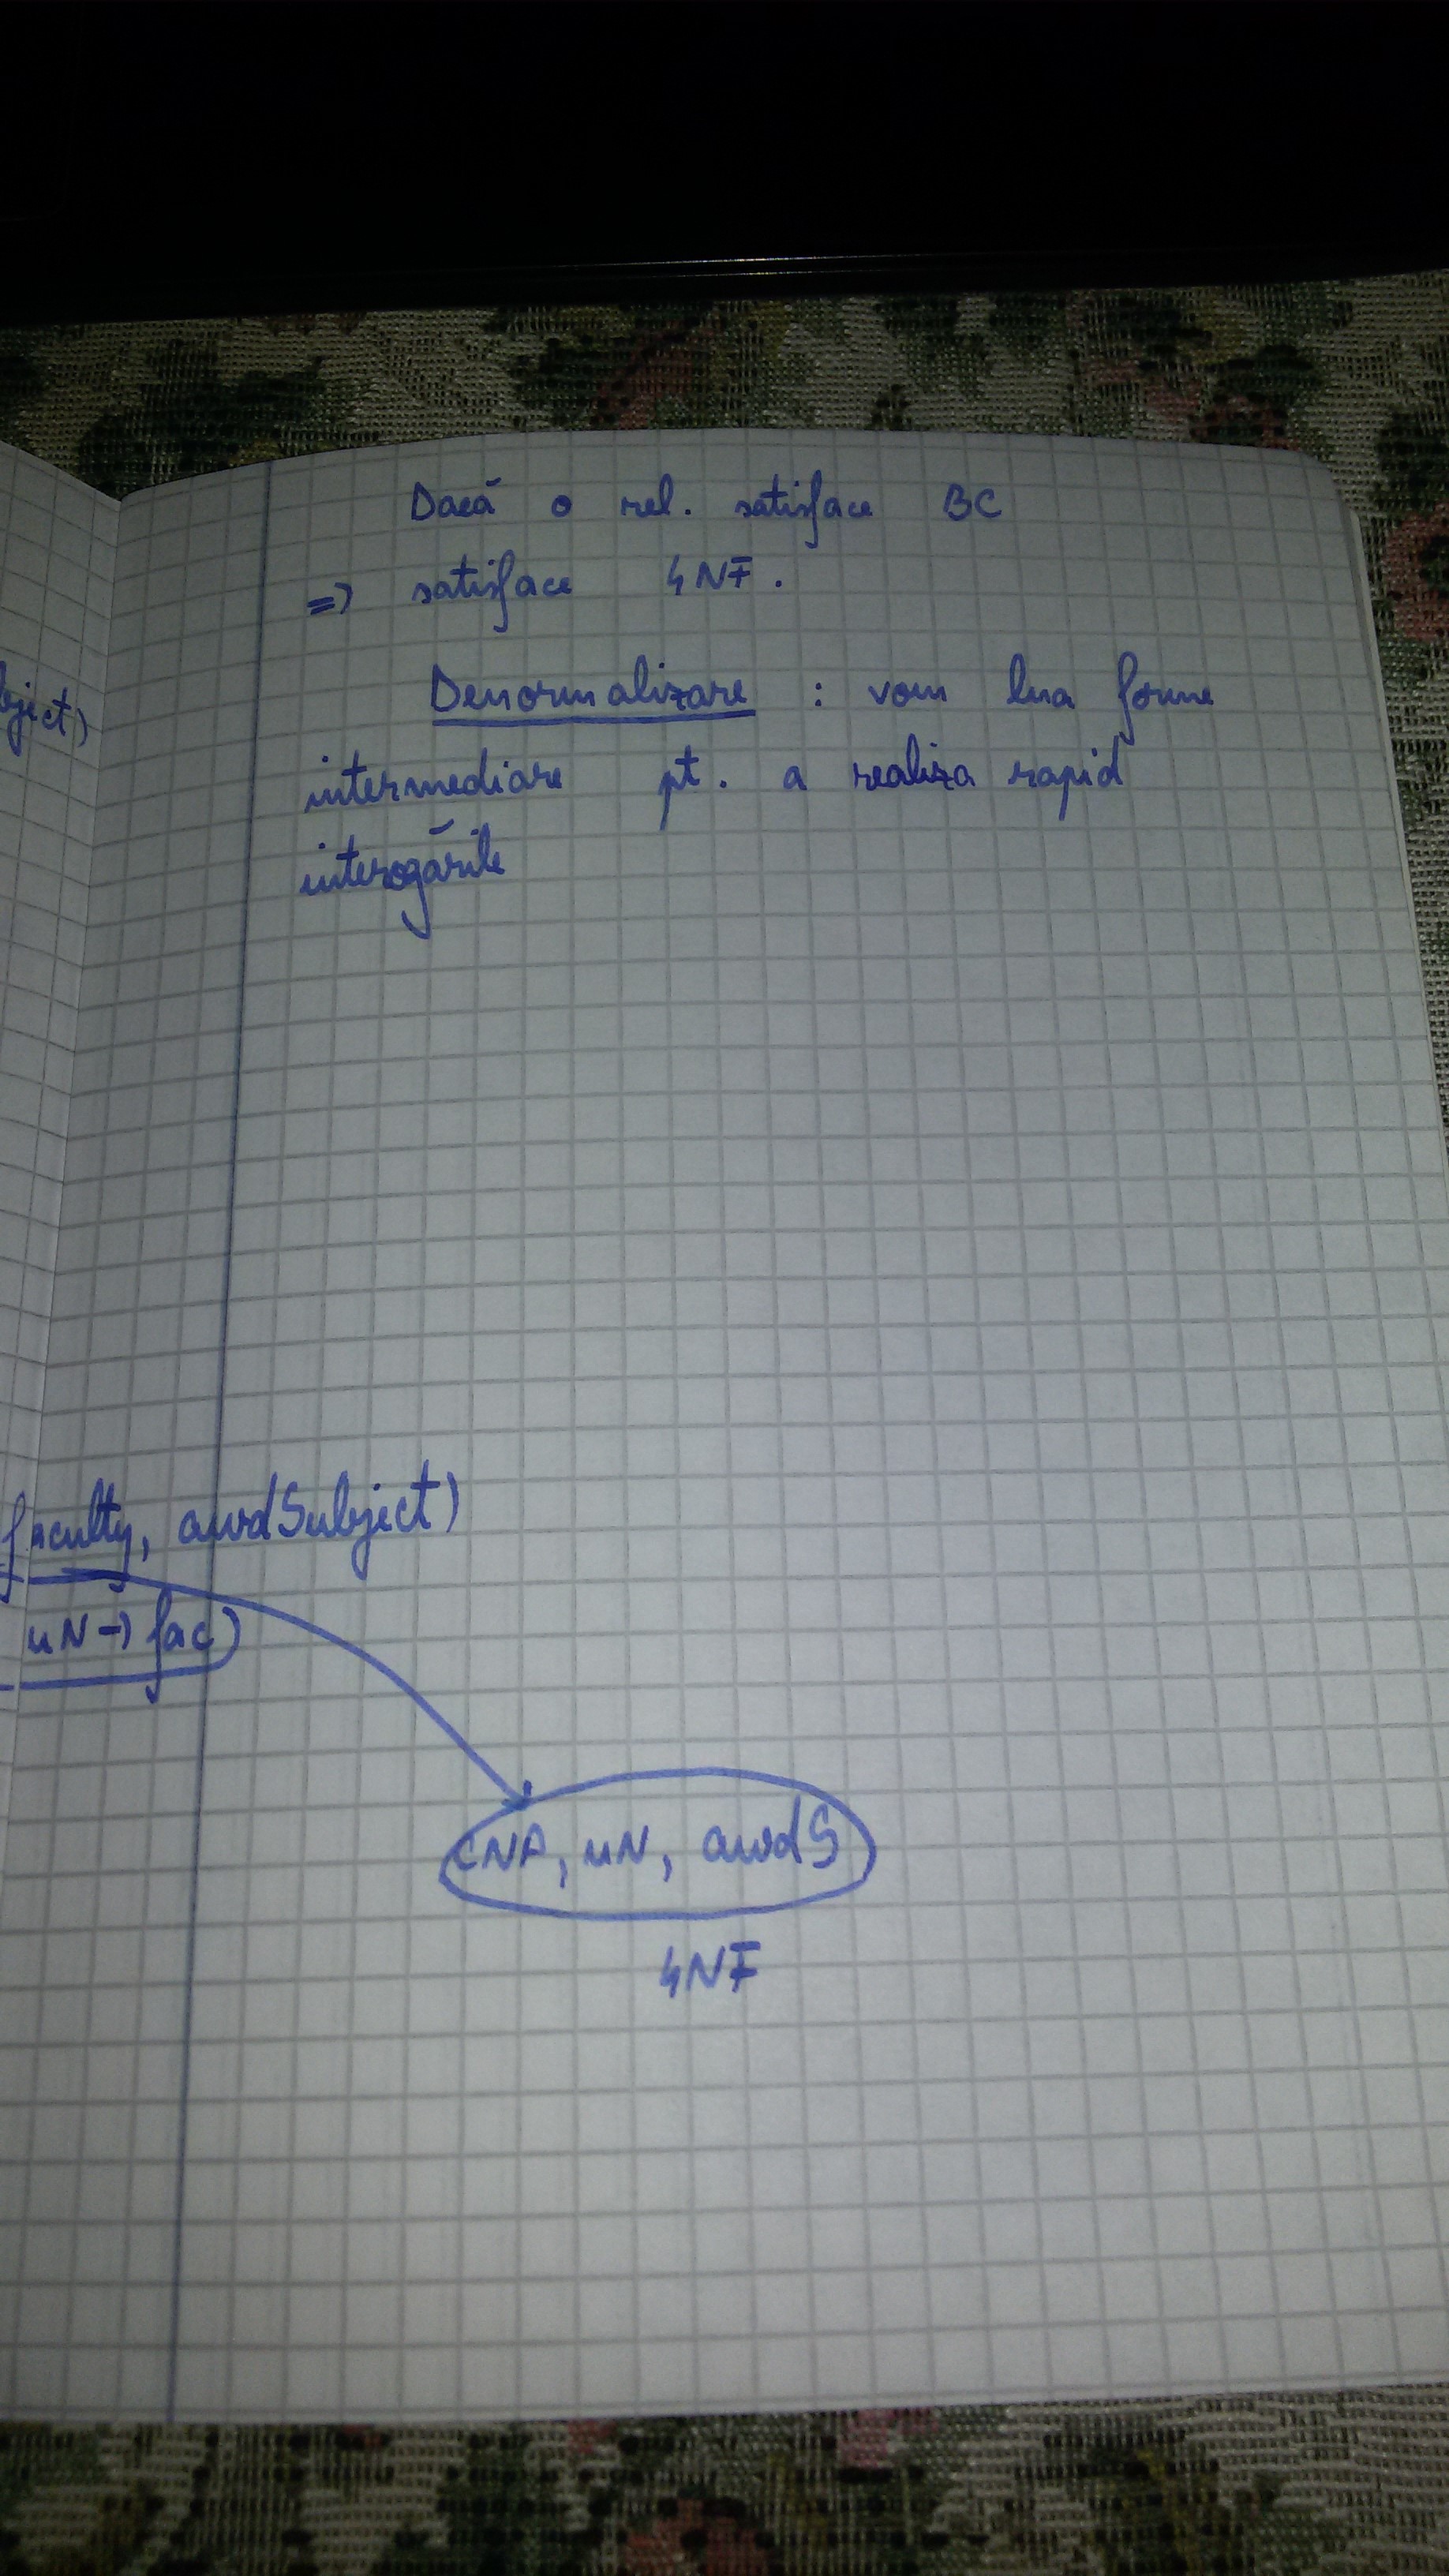 Dacă o rel. satisface BC
=> satisface 4NF.
Denormalizare : vom lua forme
intermediare pt. a realiza rapid
interogările
bject)
faculty, awdSubject)
uN -> fac)
CNP, uN, awdS
4NF